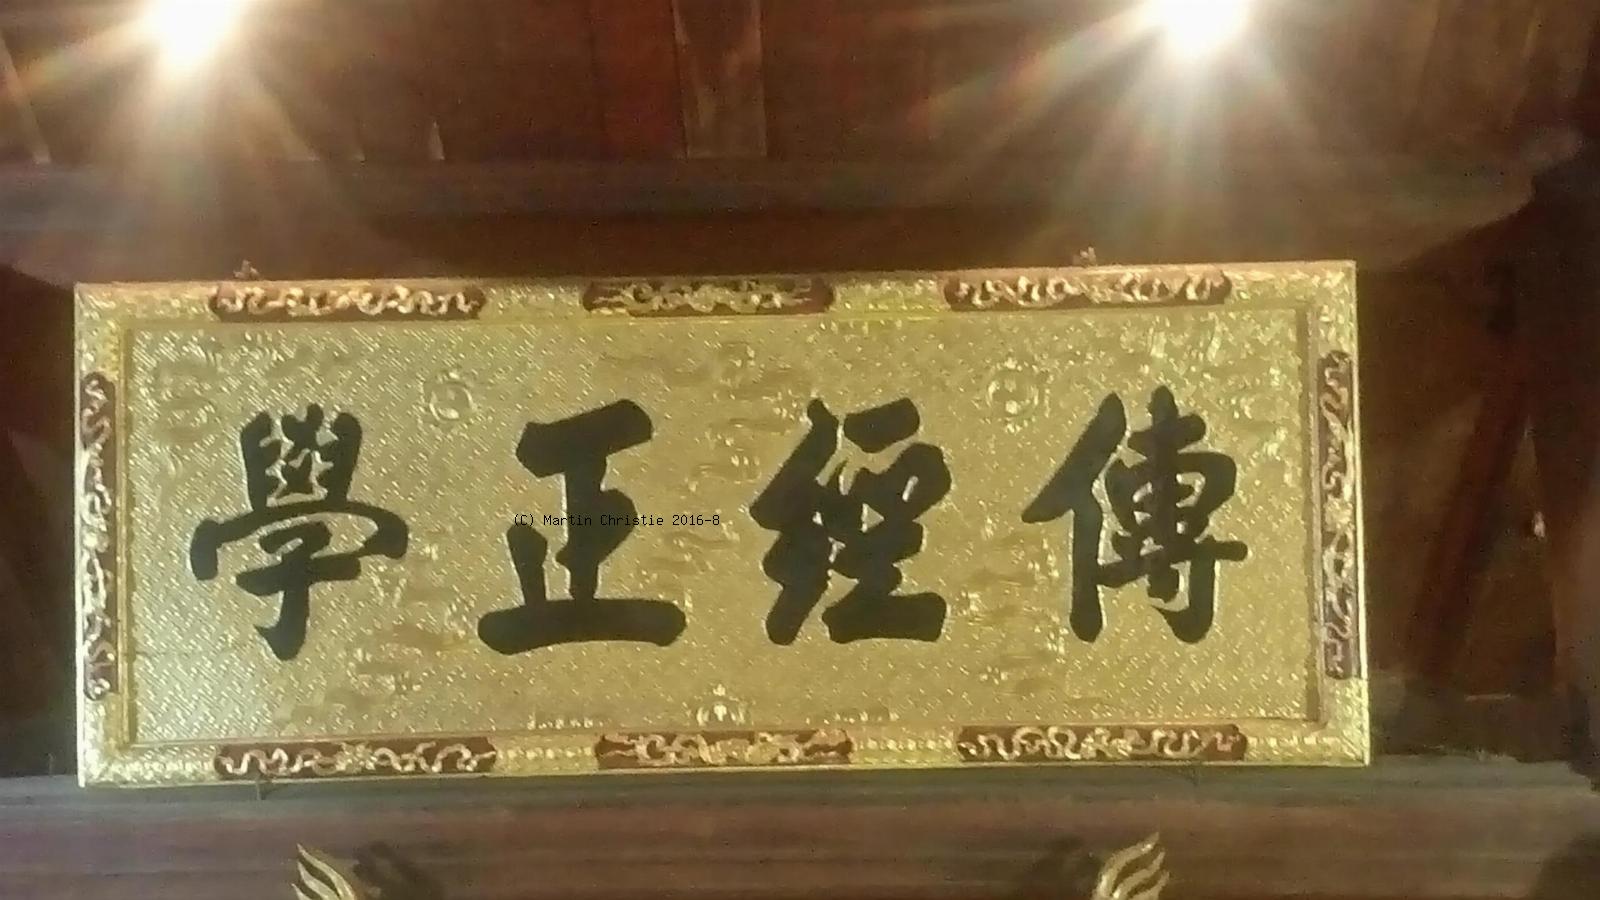 傳經正學
(C) Martin Christie 2016-8